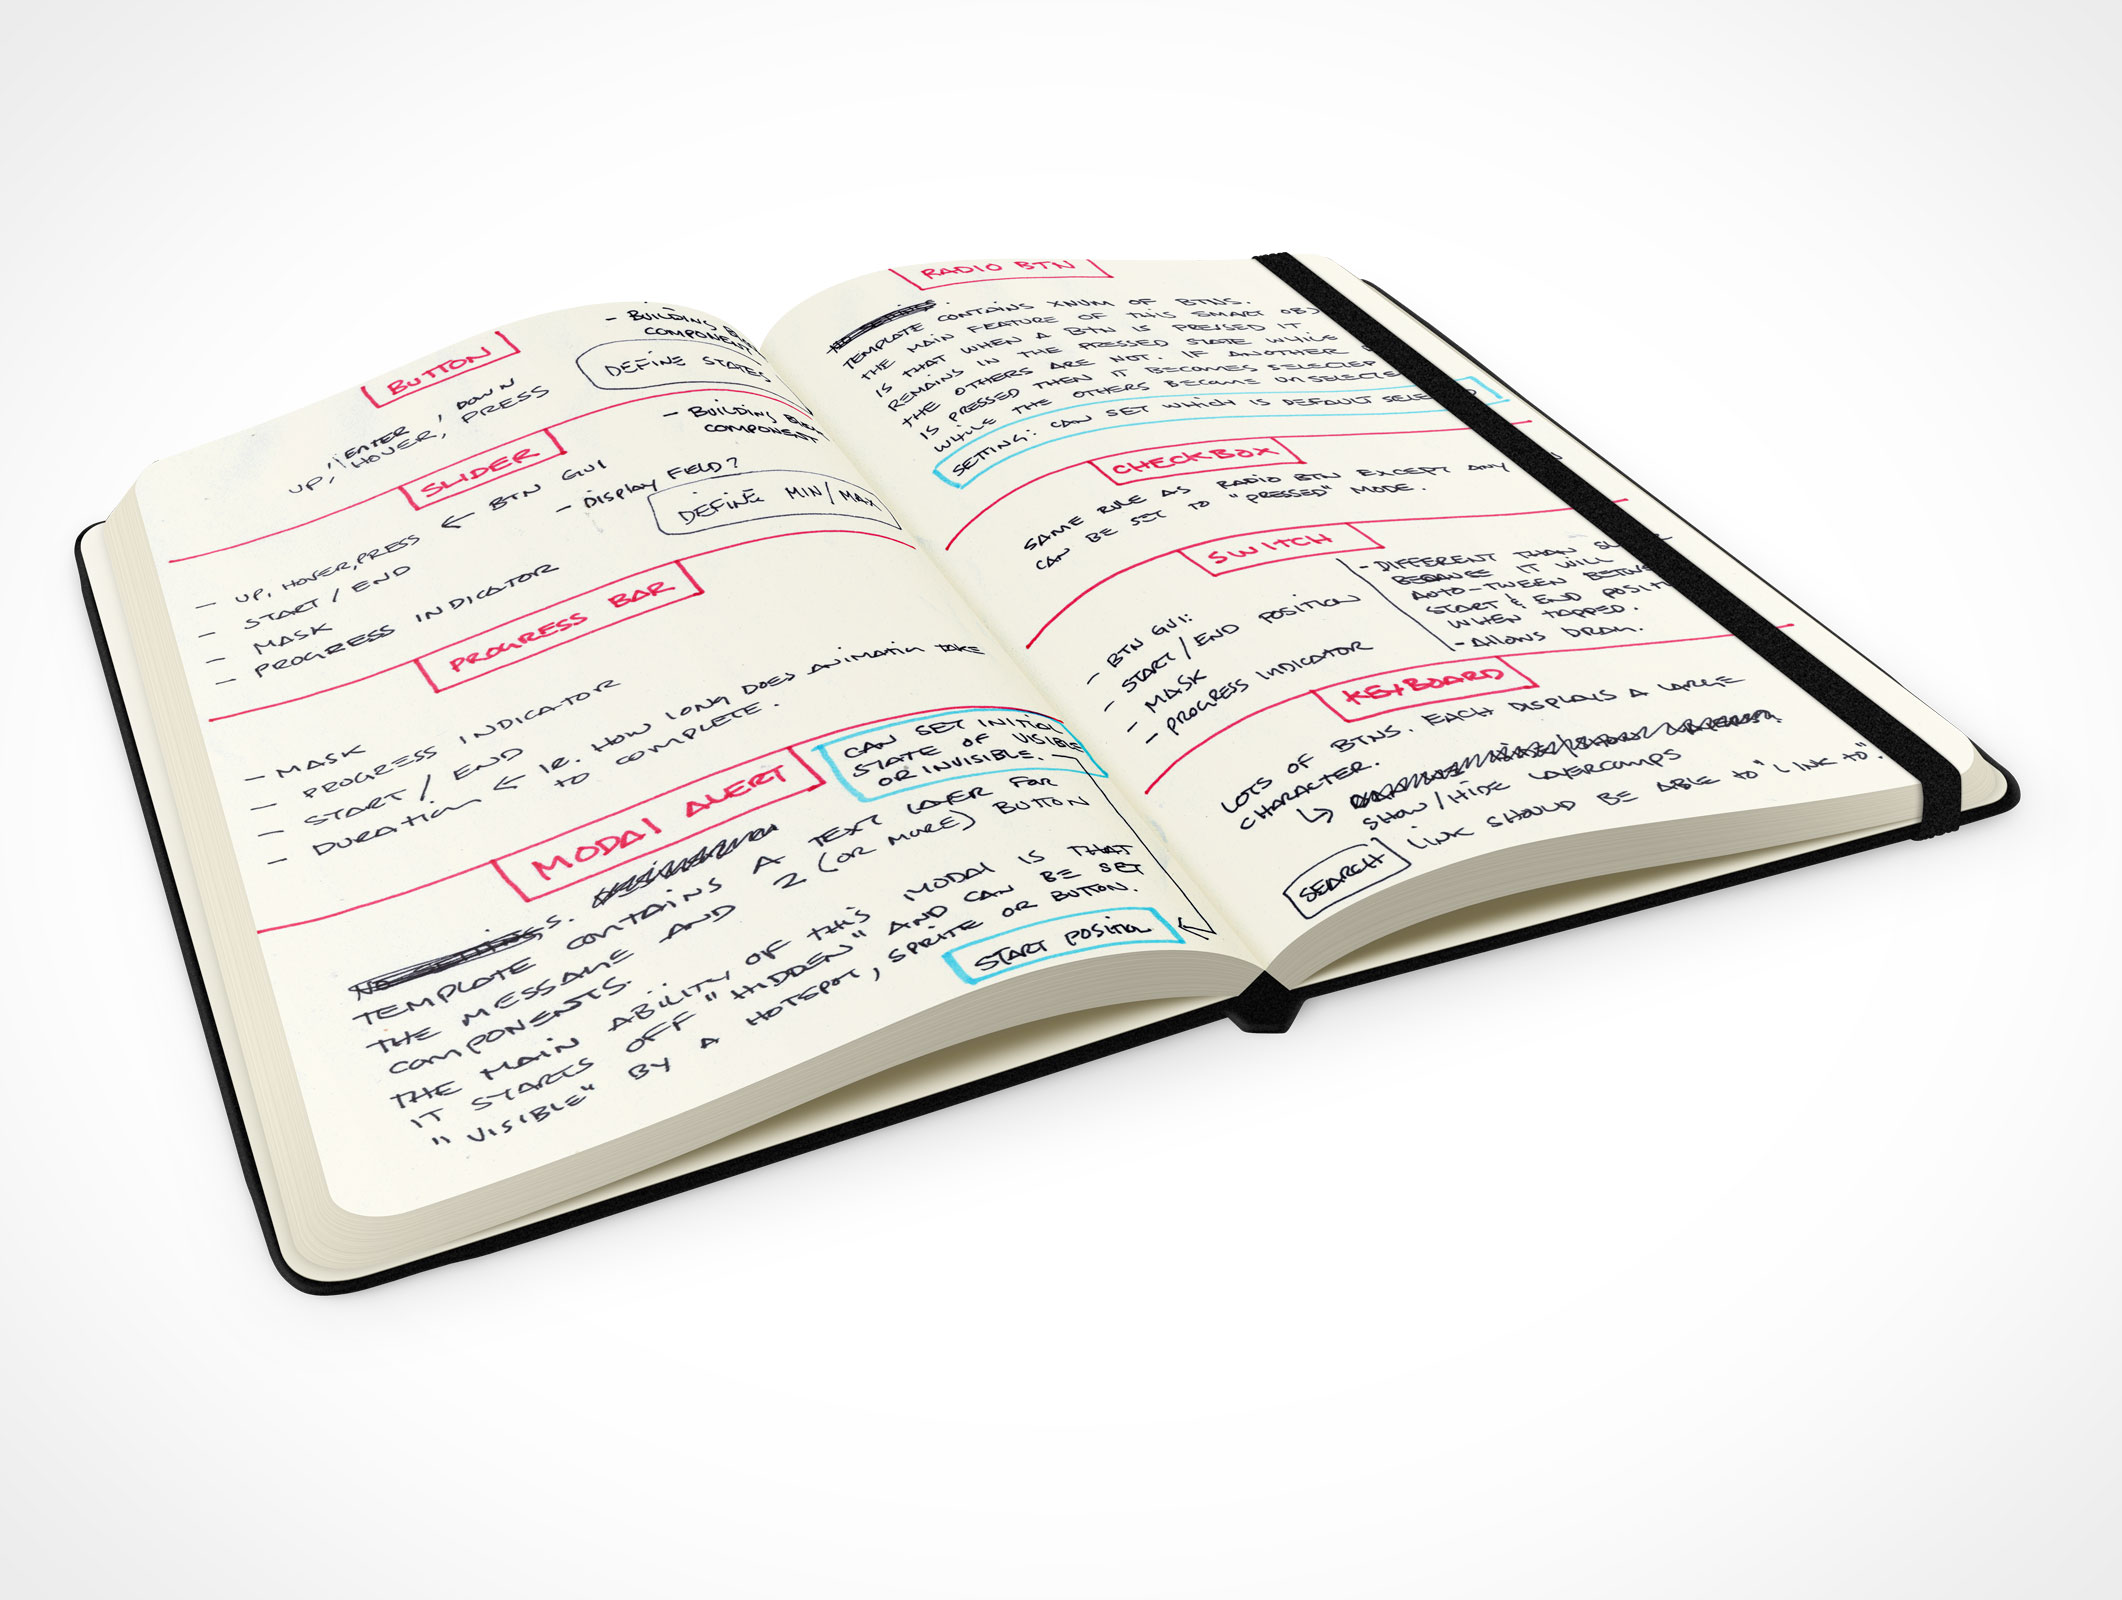 BUTTON
- BUILDING
COMPONENT
DEFINE STATES
UP, ENTER, DOWN
HOVER, PRESS
SLIDER
- BUILDING
COMPONENT
← BTN GUI
- DISPLAY FIELD?
DEFINE MIN/MAX
- UP, HOVER, PRESS
- START / END
- MASK
- PROGRESS INDICATOR
PROGRESS BAR
- MASK
- PROGRESS INDICATOR
- START / END
- DURATION ← IE. HOW LONG DOES ANIMATION TAKE
TO COMPLETE.
MODAL ALERT
CAN SET INITIAL
STATE OF VISIBLE
OR INVISIBLE.
NO SETTINGS.
TEMPLATE CONTAINS A TEXT LAYER FOR
THE MESSAGE AND 2 (OR MORE) BUTTON
COMPONENTS.
THE MAIN ABILITY OF THIS MODAL IS THAT
IT STARTS OFF "HIDDEN" AND CAN BE SET
"VISIBLE" BY A HOTSPOT, SPRITE OR BUTTON.
START POSITION
RADIO BTN
NO SETTINGS.
TEMPLATE CONTAINS XNUM OF BTNS.
THE MAIN FEATURE OF THIS SMART OBJ
IS THAT WHEN A BTN IS PRESSED IT
REMAINS IN THE PRESSED STATE WHILE
THE OTHERS ARE NOT. IF ANOTHER
IS PRESSED THEN IT BECOMES SELECTED
WHILE THE OTHERS BECOME UNSELECTED
SETTING: CAN SET WHICH IS DEFAULT SELECTED
CHECKBOX
SAME RULE AS RADIO BTN EXCEPT ANY
CAN BE SET TO "PRESSED" MODE.
SWITCH
- BTN GUI:
- START / END POSITION
- MASK
- PROGRESS INDICATOR
- DIFFERENT THAN
BECAUSE IT WILL
AUTO-TWEEN
START & END
WHEN TAPPED.
- ALLOWS DRAG.
KEYBOARD
LOTS OF BTNS. EACH DISPLAYS A LARGE
CHARACTER.
↳
SHOW/HIDE LAYERCOMPS
SEARCH LINK SHOULD BE ABLE TO "LINK TO".